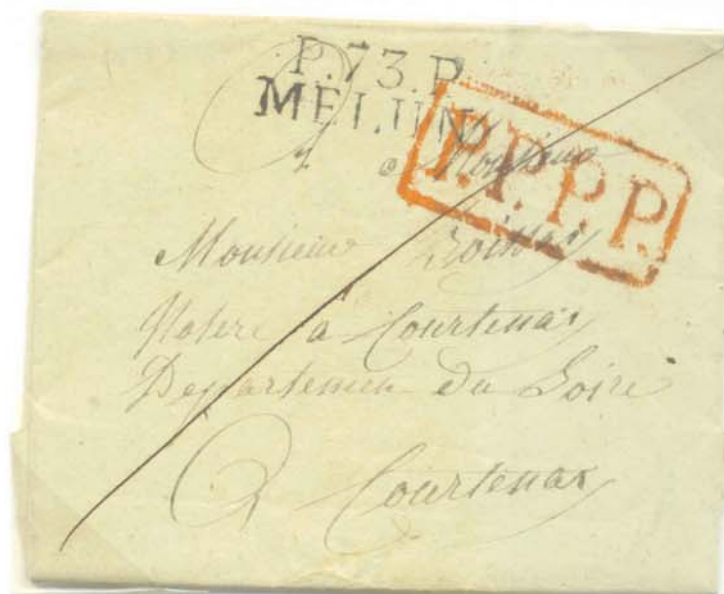 P.73.P.
MELUN
P.P.P.P.
a Monsieur
Monsieur
Notere à Courtenai
Departemen du Loire
A Courtenai